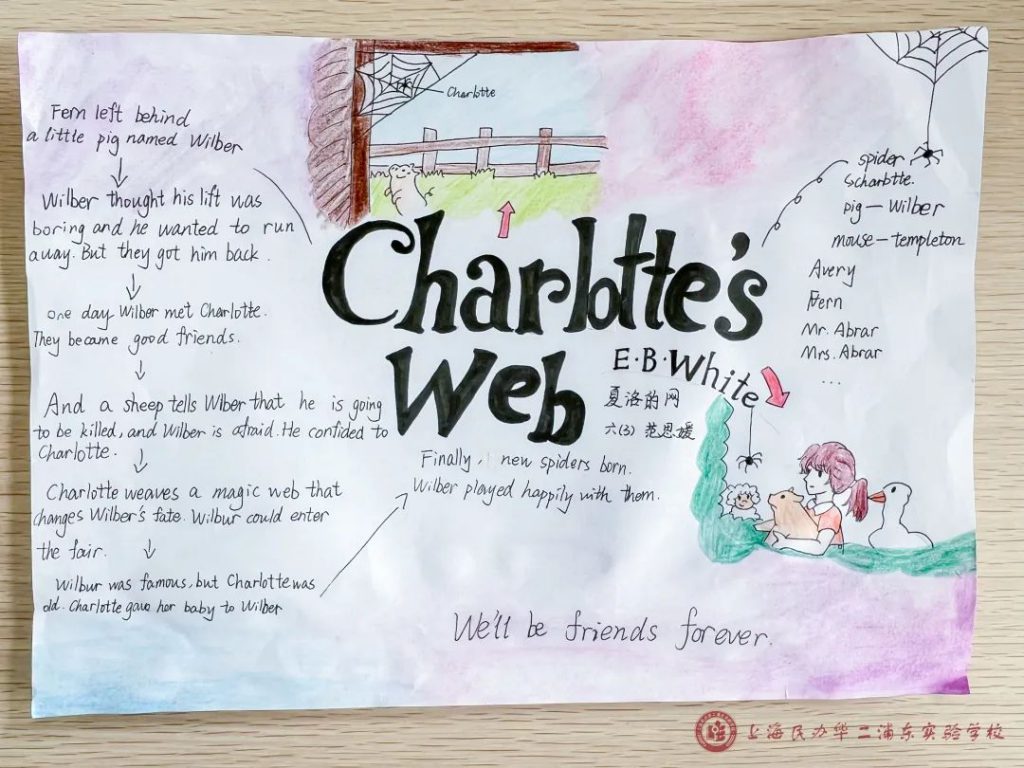 Fern left behind
a little pig named Wilber
Wilber thought his lift was
boring and he wanted to run
away. But they got him back.
one day Wilber met Charlotte.
They became good friends.
And a sheep tells Wlber that he is going
to be killed, and Wilber is afraid. He confided to
Charlotte.
Charlotte weaves a magic web that
changes Wilber's fate. Wilbur could enter
the fair.
Wilbur was famous, but Charlotte was
old. Charlotte gave her baby to Wilber
Charlotte
Charlotte's
Web
E·B·White
夏洛的网
六(3) 范思媛
Finally, new spiders born.
Wilber played happily with them.
spider
scharbtte.
pig — Wilber
mouse — templeton
Avery
Fern
Mr. Abrar
Mrs. Abrar
...
We'll be friends forever.
上海民办华二浦东实验学校